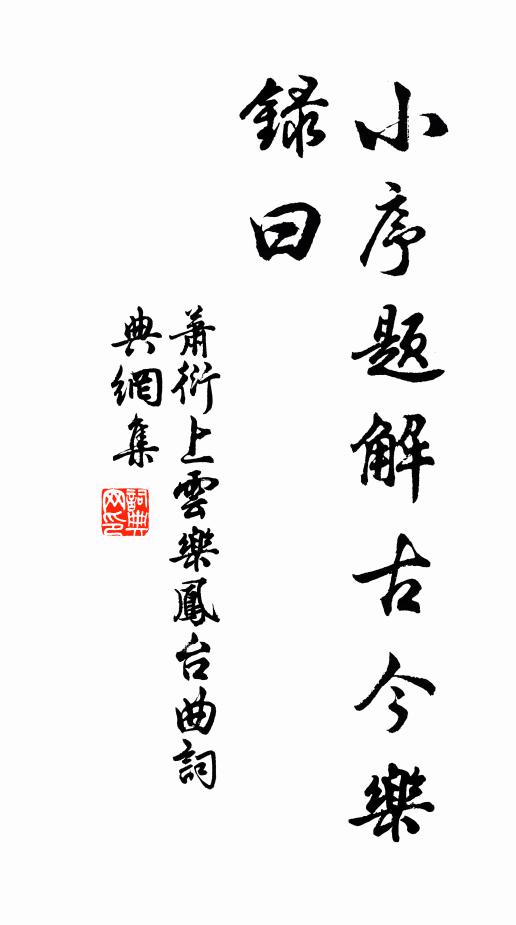 小序題解古今樂
録曰
蕭衍上雲樂鳳台曲詞
典網集
詞典
网印